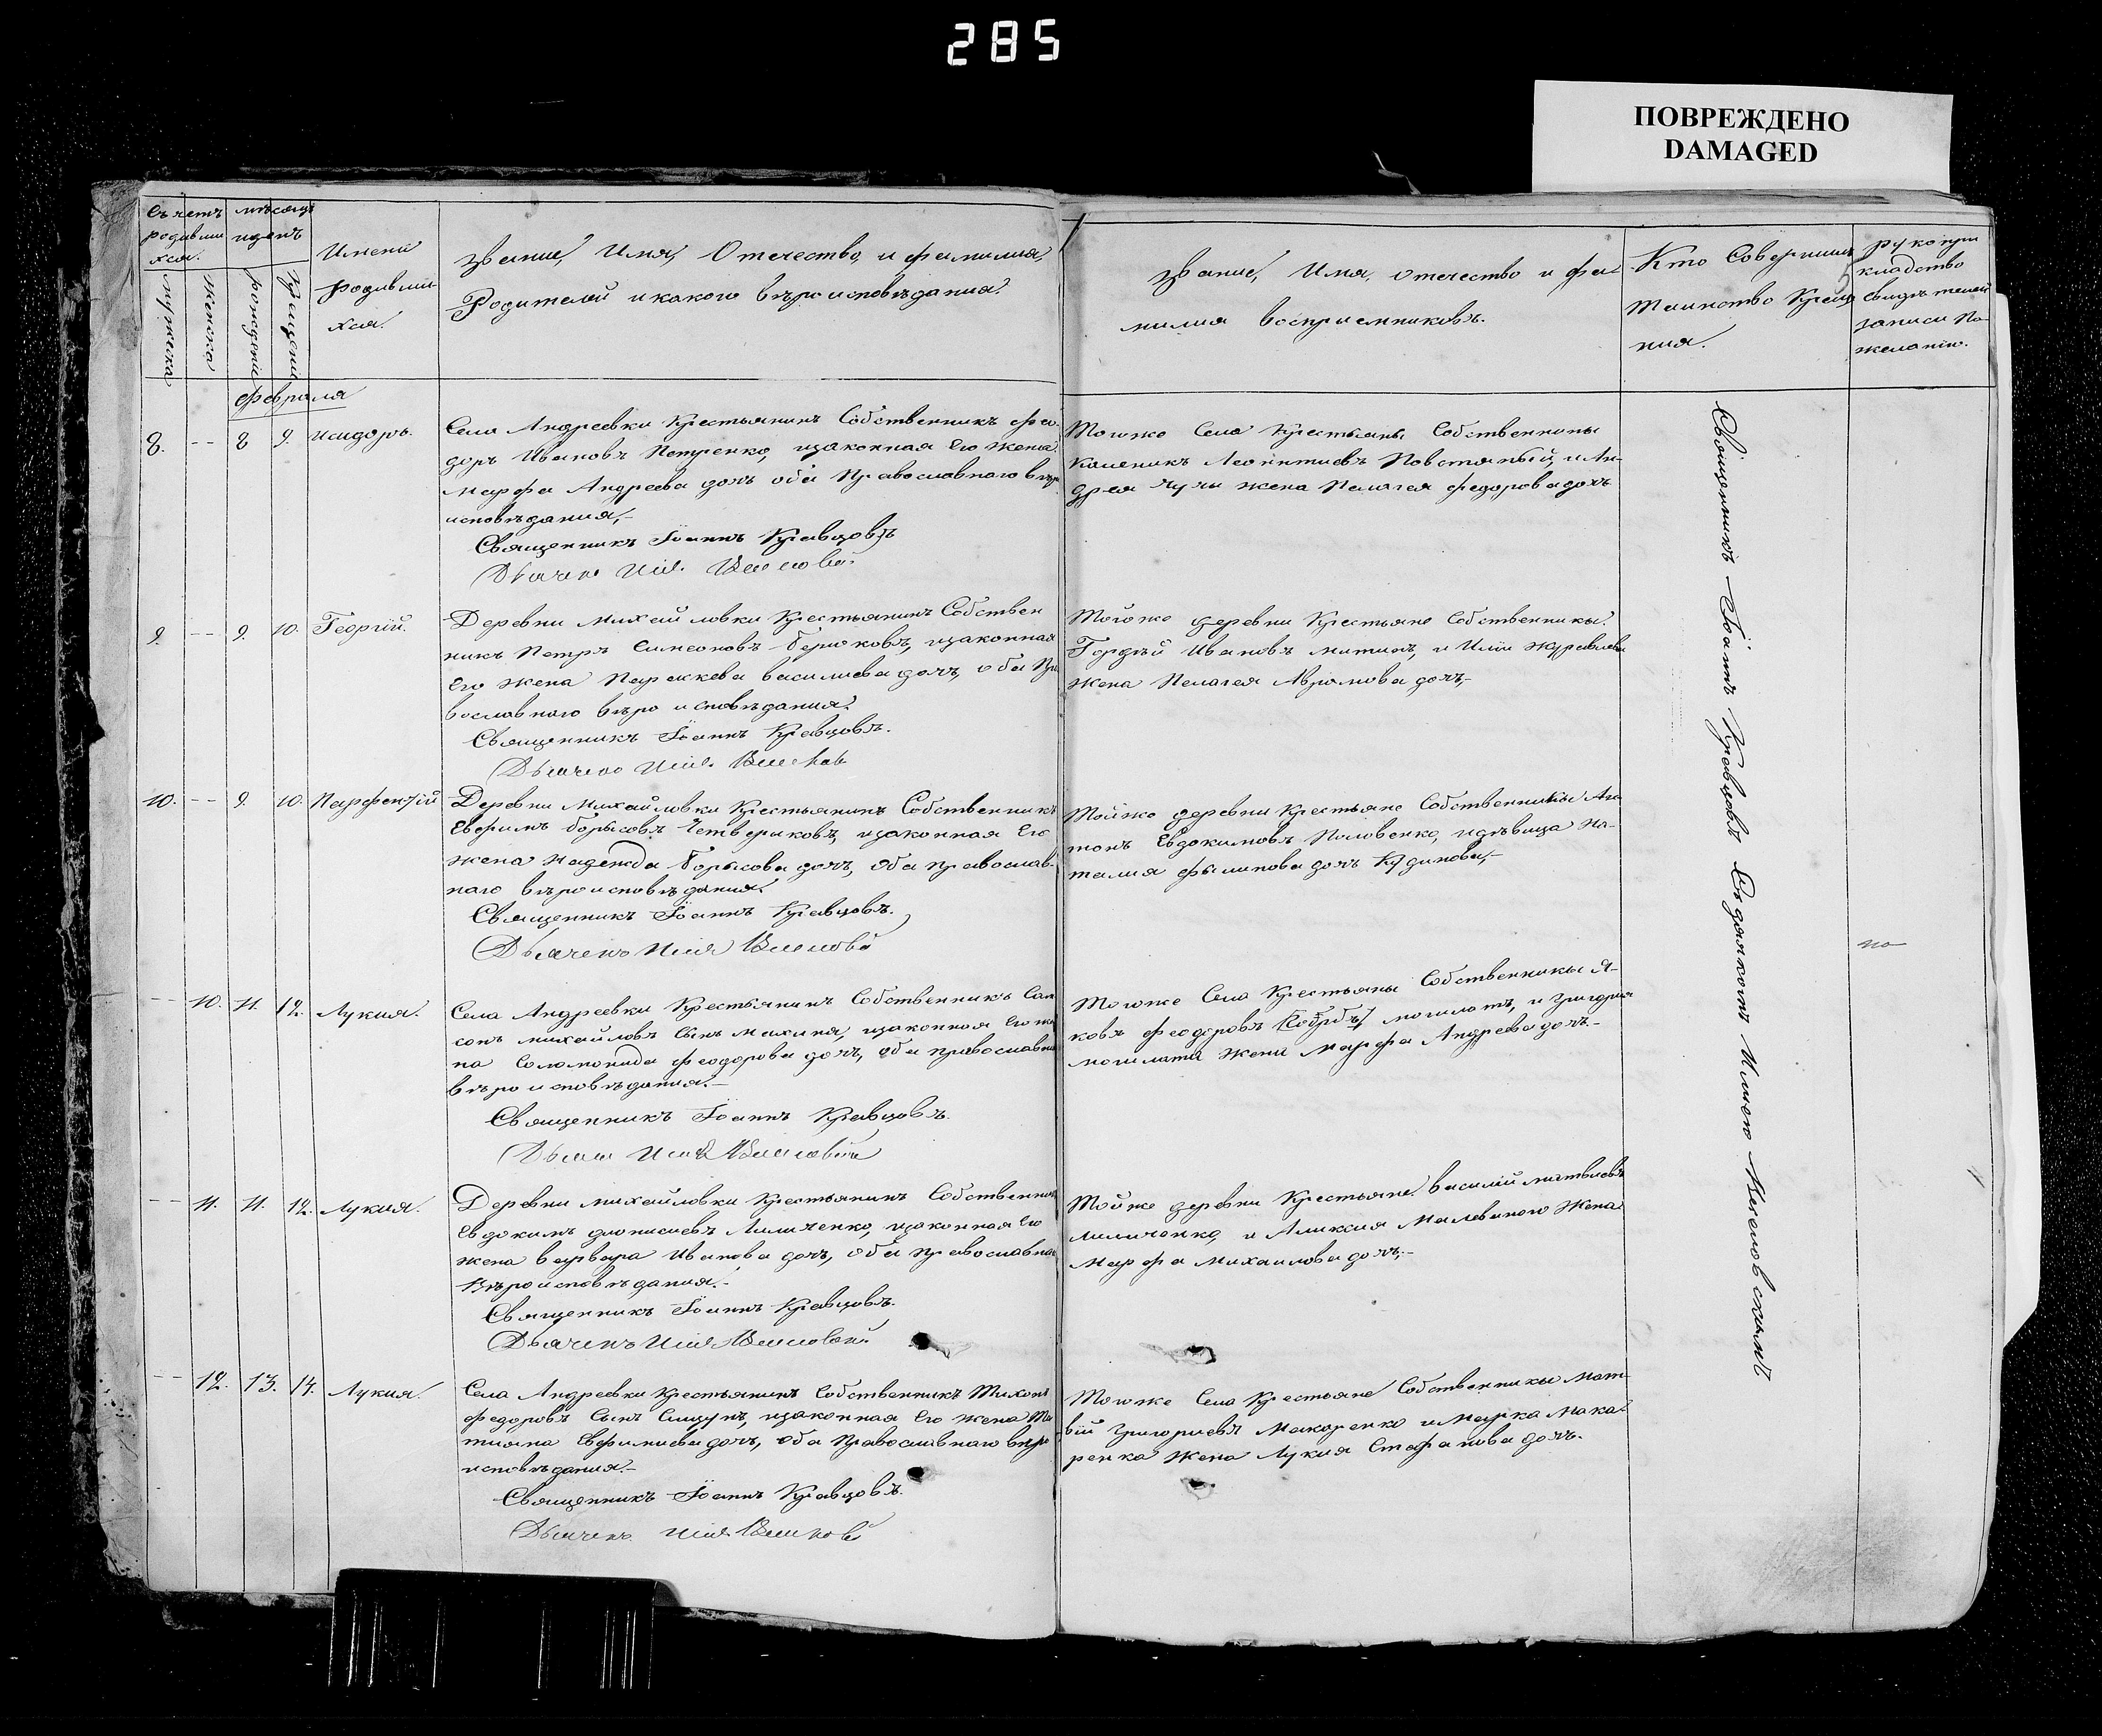 285
ПОВРЕЖДЕНО
DAMAGED
Счетъ родивши хся.
мѣсяцъ и день
мужеска
женска
рождени
крещени
Имена
родивши
хся.
Звание, Имя, Отечество, и фамилия,
Родителей и какого вѣроисповѣдания.
Звание, Имя, отечество и фа
милия восприемниковъ.
Кто Совершилъ
Таинство Креще
ния.
рукопри
кладство
свидѣтелей
записи по
желанію.
февраля
8. -- 8 9. Исидоръ.
Села Андреевки Крестьянинъ Собственникъ фео
доръ Ивановъ Петренко, изаконная Его жена
Марфа Андреева дочъ оба Православнаго вѣро
исповѣдания,-
Священникъ Іоаннъ Кравцовъ
Тогоже Села Крестьяны Собственники
Леонтиевъ Повстяный, и Ан
дрея жена Пелагея федорова дочъ
9. -- 9. 10. Георгій.
Деревни Михайловки Крестьянинъ Собствен
никъ Петръ Симеоновъ Бирюковъ, изаконная
Его жена Параскева василиева дочъ, оба Пра
вославнаго вѣро исповѣдания.
Священникъ Іоаннъ Кравцовъ.
Тогоже деревни Крестьяне Собственники.
Гордѣй Ивановъ митинъ, и Иліи Журавлева
жена Пелагея Аврамова дочъ,-
10. -- 9. 10. Парфентій
Деревни Михайловки Крестьянинъ Собственникъ
Евфимъ Борысовъ Четвериковъ, изаконная Его
жена Надежда Борысова дочъ, оба православ-
наго вѣроисповѣдания.
Священникъ Іоаннъ Кравцовъ.
Тойже деревни Крестьяне Собственники Ан
тонъ Евдокимовъ Половенко, идѣвица На-
талия филипова дочъ Кудинова,-
-- 10. 11. 12. Лукия.
Села Андреевки Крестьянинъ Собственникъ Сам
сонъ михайловъ Сынъ Махиня, изаконная Его же
на Соломонида феодорова дочъ, оба православнаго
вѣро исповѣдания.-
Священникъ Іоаннъ Кравцовъ.
Тогоже Села Крестьяны Собственникы Я-
ковъ феодоровъ могилатъ, и григория
могилата жена Марфа Андреева дочъ.-
-- 11. 11. 12. Лукия.
Деревни михайловки Крестьянинъ Собственникъ
Евдокимъ дионисиевъ Лиличенко, изаконная Его
жена варвара Иванова дочъ, оба православнаго
Вѣроисповѣдания.-
Священникъ Іоаннъ Кравцовъ.
Тойже деревни Крестьяне василій матвиевъ
лиличенко, и Алексия Малеваного Жена
Марфа Михаилова дочъ,-
-- 12. 13. 14. Лукия.
Села Андреевки Крестьянинъ Собственникъ Тихонъ
федоровъ Сынъ изаконная Его жена Та
тияна Евфимиева дочъ, оба Православнаго вѣро
исповѣдания.-
Священникъ Іоаннъ Кравцовъ.
Тогоже Села Крестьяне Собственникы Мат
вій григориевъ Макаренко и Марка Мака
ренка жена Лукия Стефанова дочъ.
Священникъ Іоаннъ Кравцовъ Съ дьякомъ
но